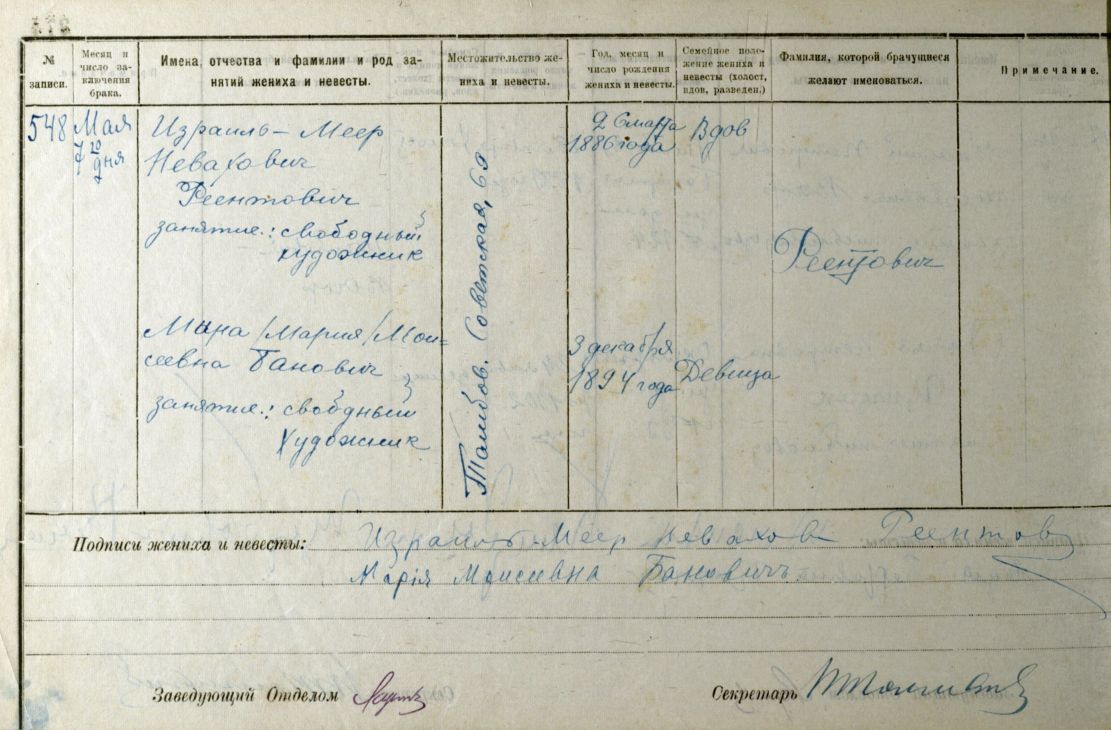 № записи.
Месяц и число заключения брака.
Имена, отчества и фамилии и род занятий жениха и невесты.
Местожительство жениха и невесты.
Год, месяц и число рождения жениха и невесты.
Семейное положение жениха и невесты (холост, вдов, разведен.)
Фамилия, которой брачущиеся желают именоваться.
Примечание.
548
Мая
7го
дня
Израиль-Меер
Невахович
Реентович
занятие: свободный
художник
Тамбов. Советская, 69
2 6 марта
1886 года
Вдов
Реентович
Мина /Мария/ Мои=
сеевна Банович
занятие: свободный
художник
3 декабря
1894 года
Девица
Подписи жениха и невесты:
Израиль Меер Невахов Реентов
Марія Моисевна Бановичъ
Заведующий Отделом
Секретарь